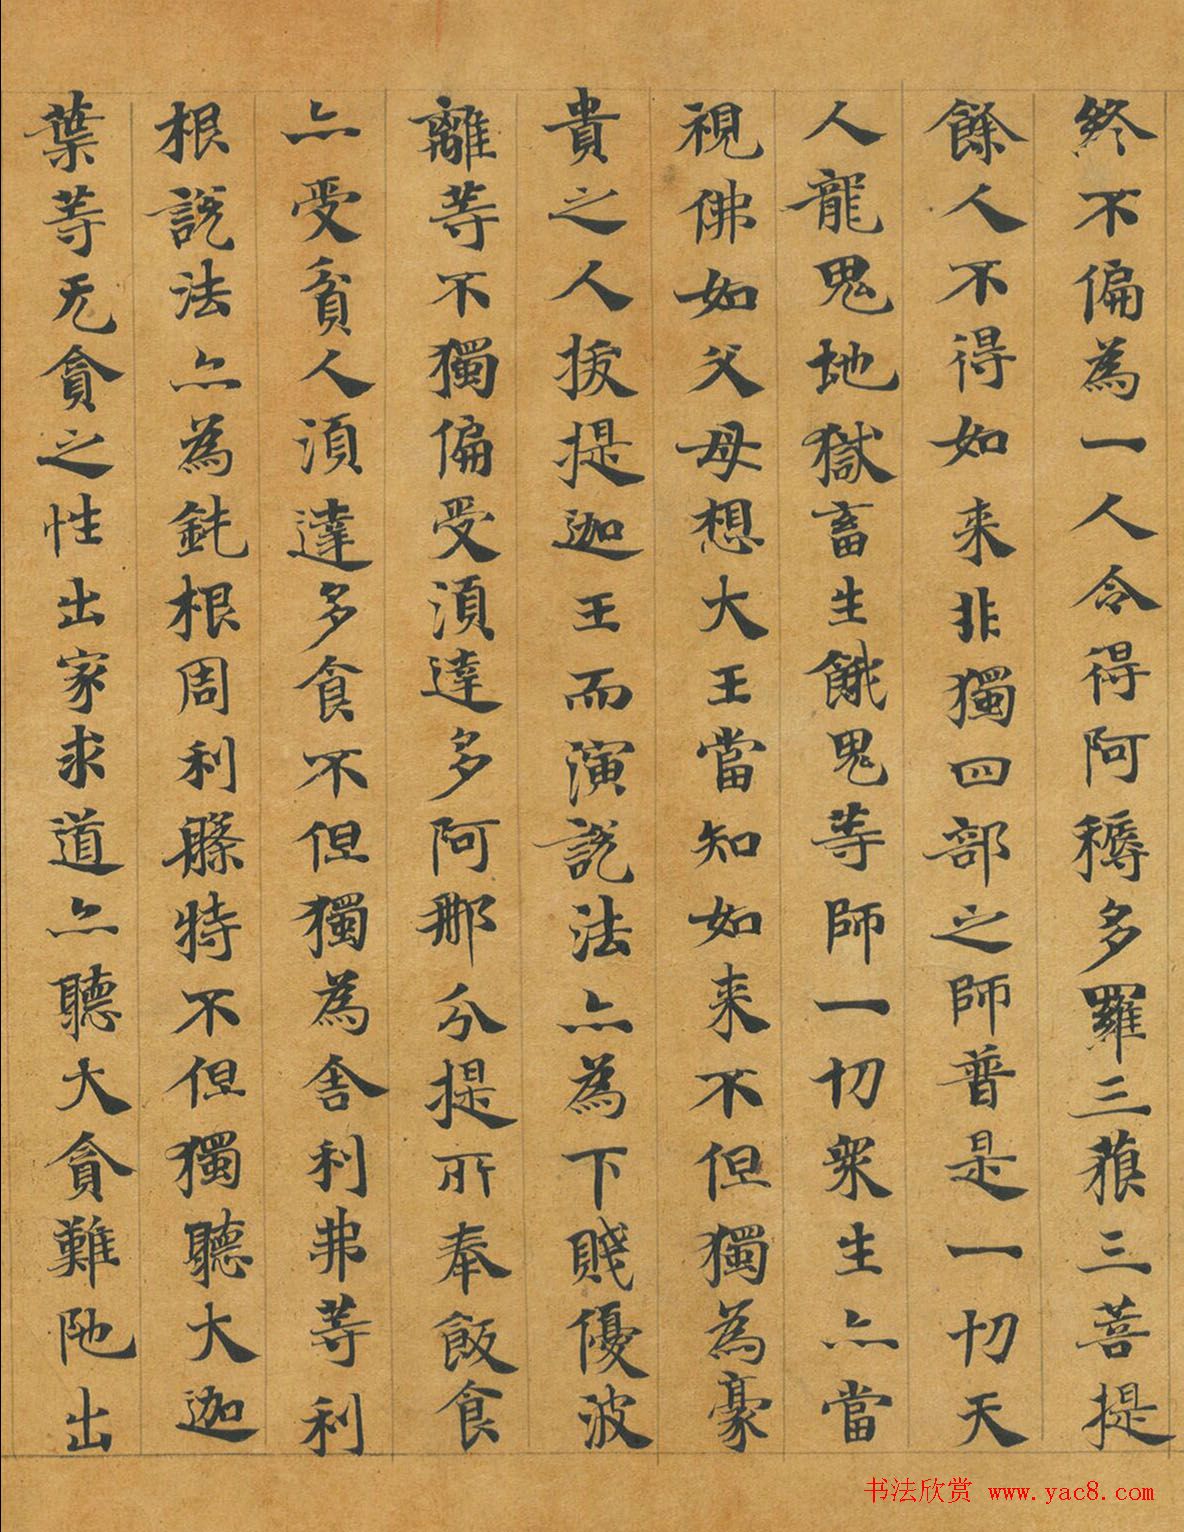 終不偏為一人令得阿耨多羅三藐三菩提
餘人不得如来非獨四部之師普是一切天
人龍鬼地獄畜生餓鬼等師一切衆生亦當
視佛如父母想大王當知如来不但獨為豪
貴之人拔提迦王而演說法亦為下賤優波
離等不獨偏受湏達多阿那分提所奉飯食
亦受貧人湏達多食不但獨為舍利弗等利
根說法亦為鈍根周利槃特不但獨聽大迦
葉等无貪之性出家求道亦聽大貪難陁出
书法欣赏 www.yac8.com